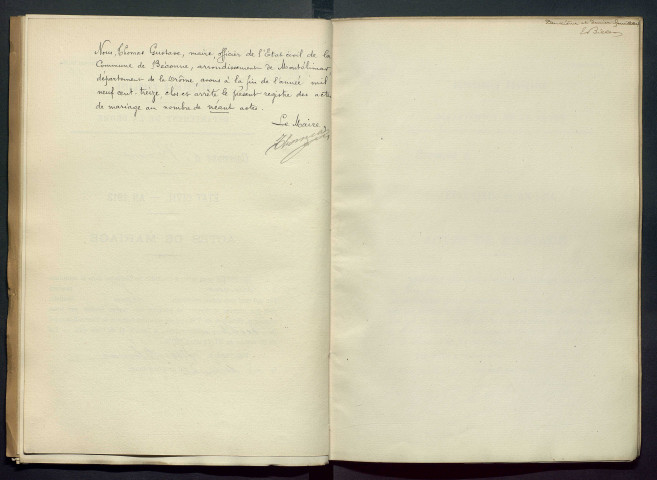 Nous, Thomas Gustave, maire, officier de l'Etat civil de la
Commune de Béconne, arrondissement de Montélimar
département de la Drôme, avons à la fin de l'année mil
neuf cent treize clos et arrêté le présent registre des actes
de mariage au nombre de néant actes.
Le Maire